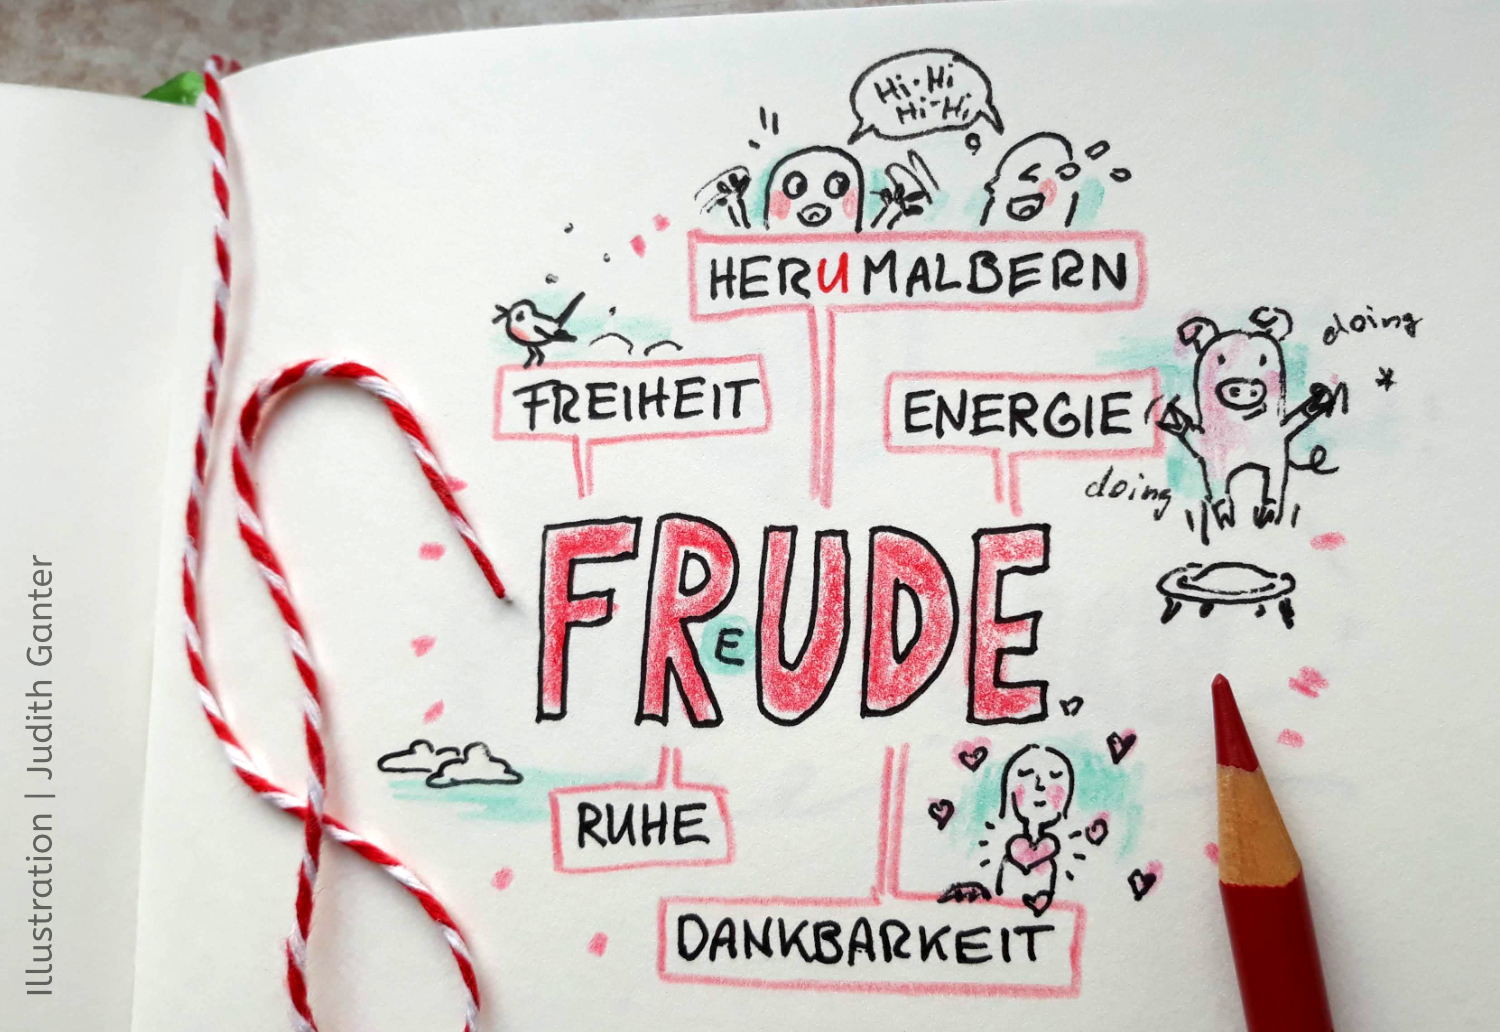 Hi-Hi
Hi-Hi
HERUMALBERN
FREIHEIT
ENERGIE
doing
doing
FReUDE
RUHE
DANKBARKEIT
Illustration | Judith Ganter